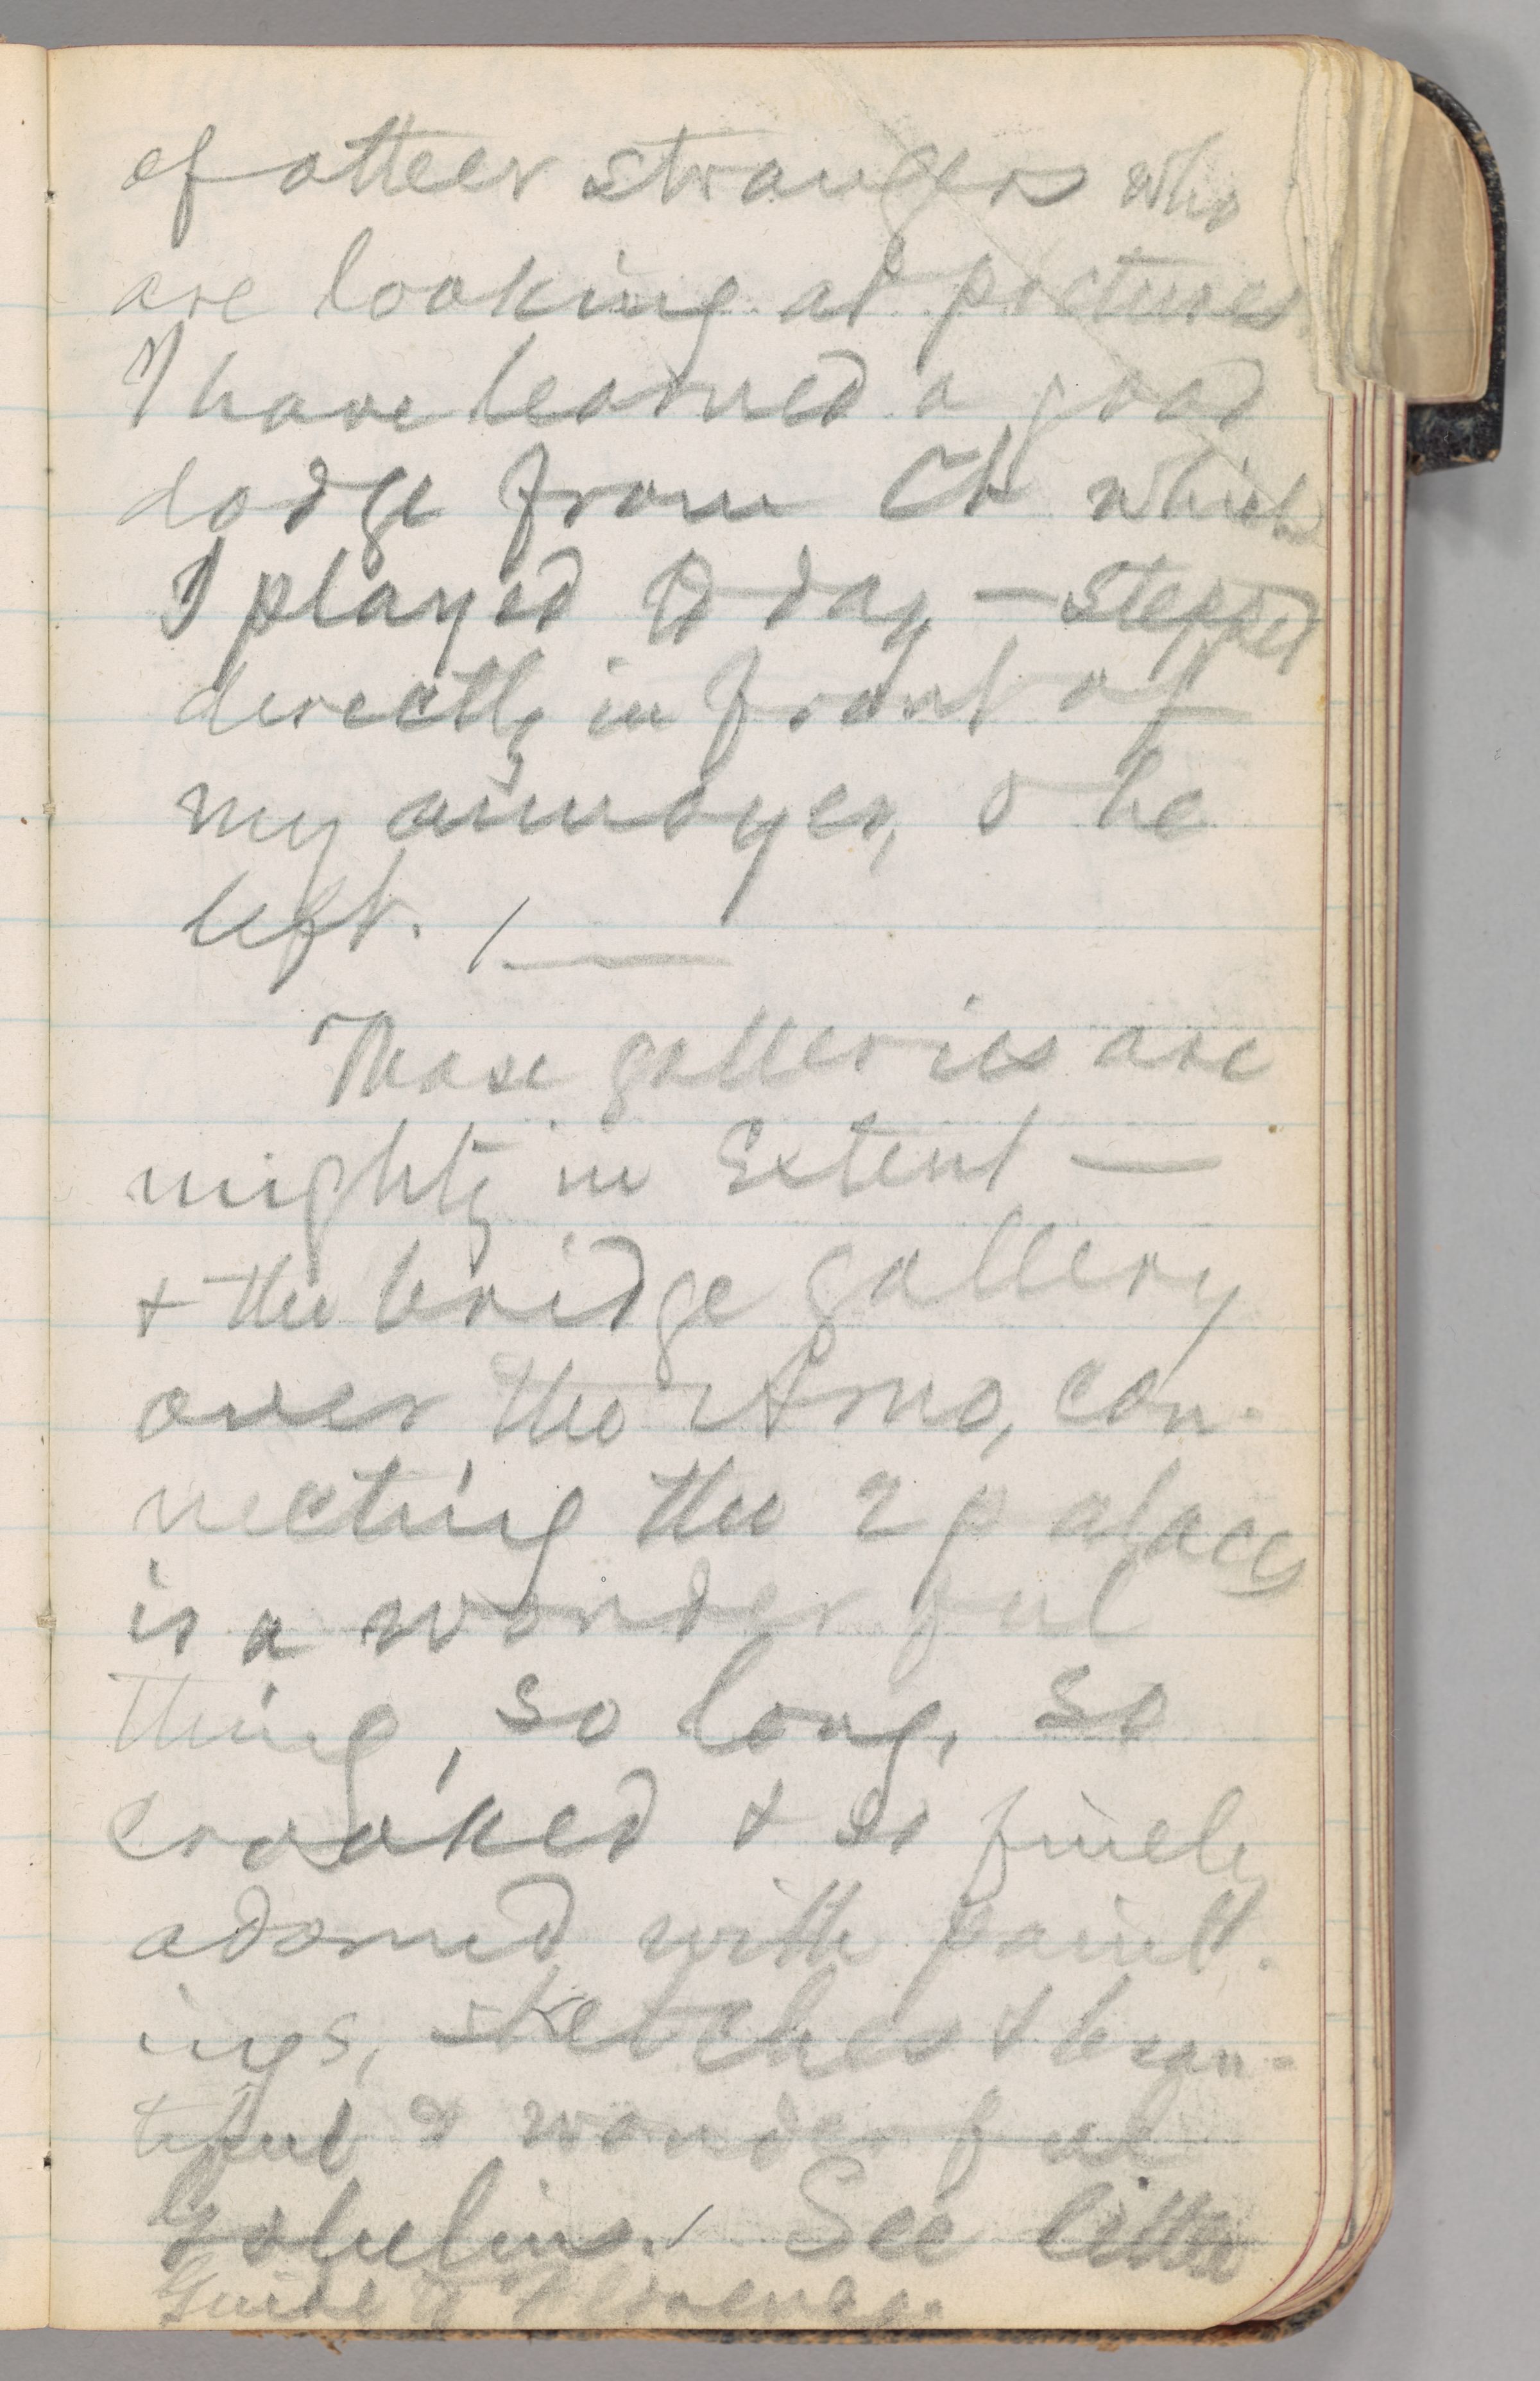 of other strangers who
are looking at pictures.
I have learned a good
dodge from Ch which
I played to day, — stepped
directly in front of
my annoyer, & he
left. / —
These galleries are
mighty in Extent —
& the bridge gallery
over the Arno, con-
necting the 2 palaces
is a wonderful
thing, so long, so
crooked & so finely
adorned with paint-
ings, sketches & beau-
tiful & wonderful
Gobelins. / See little
Guide to Florence.